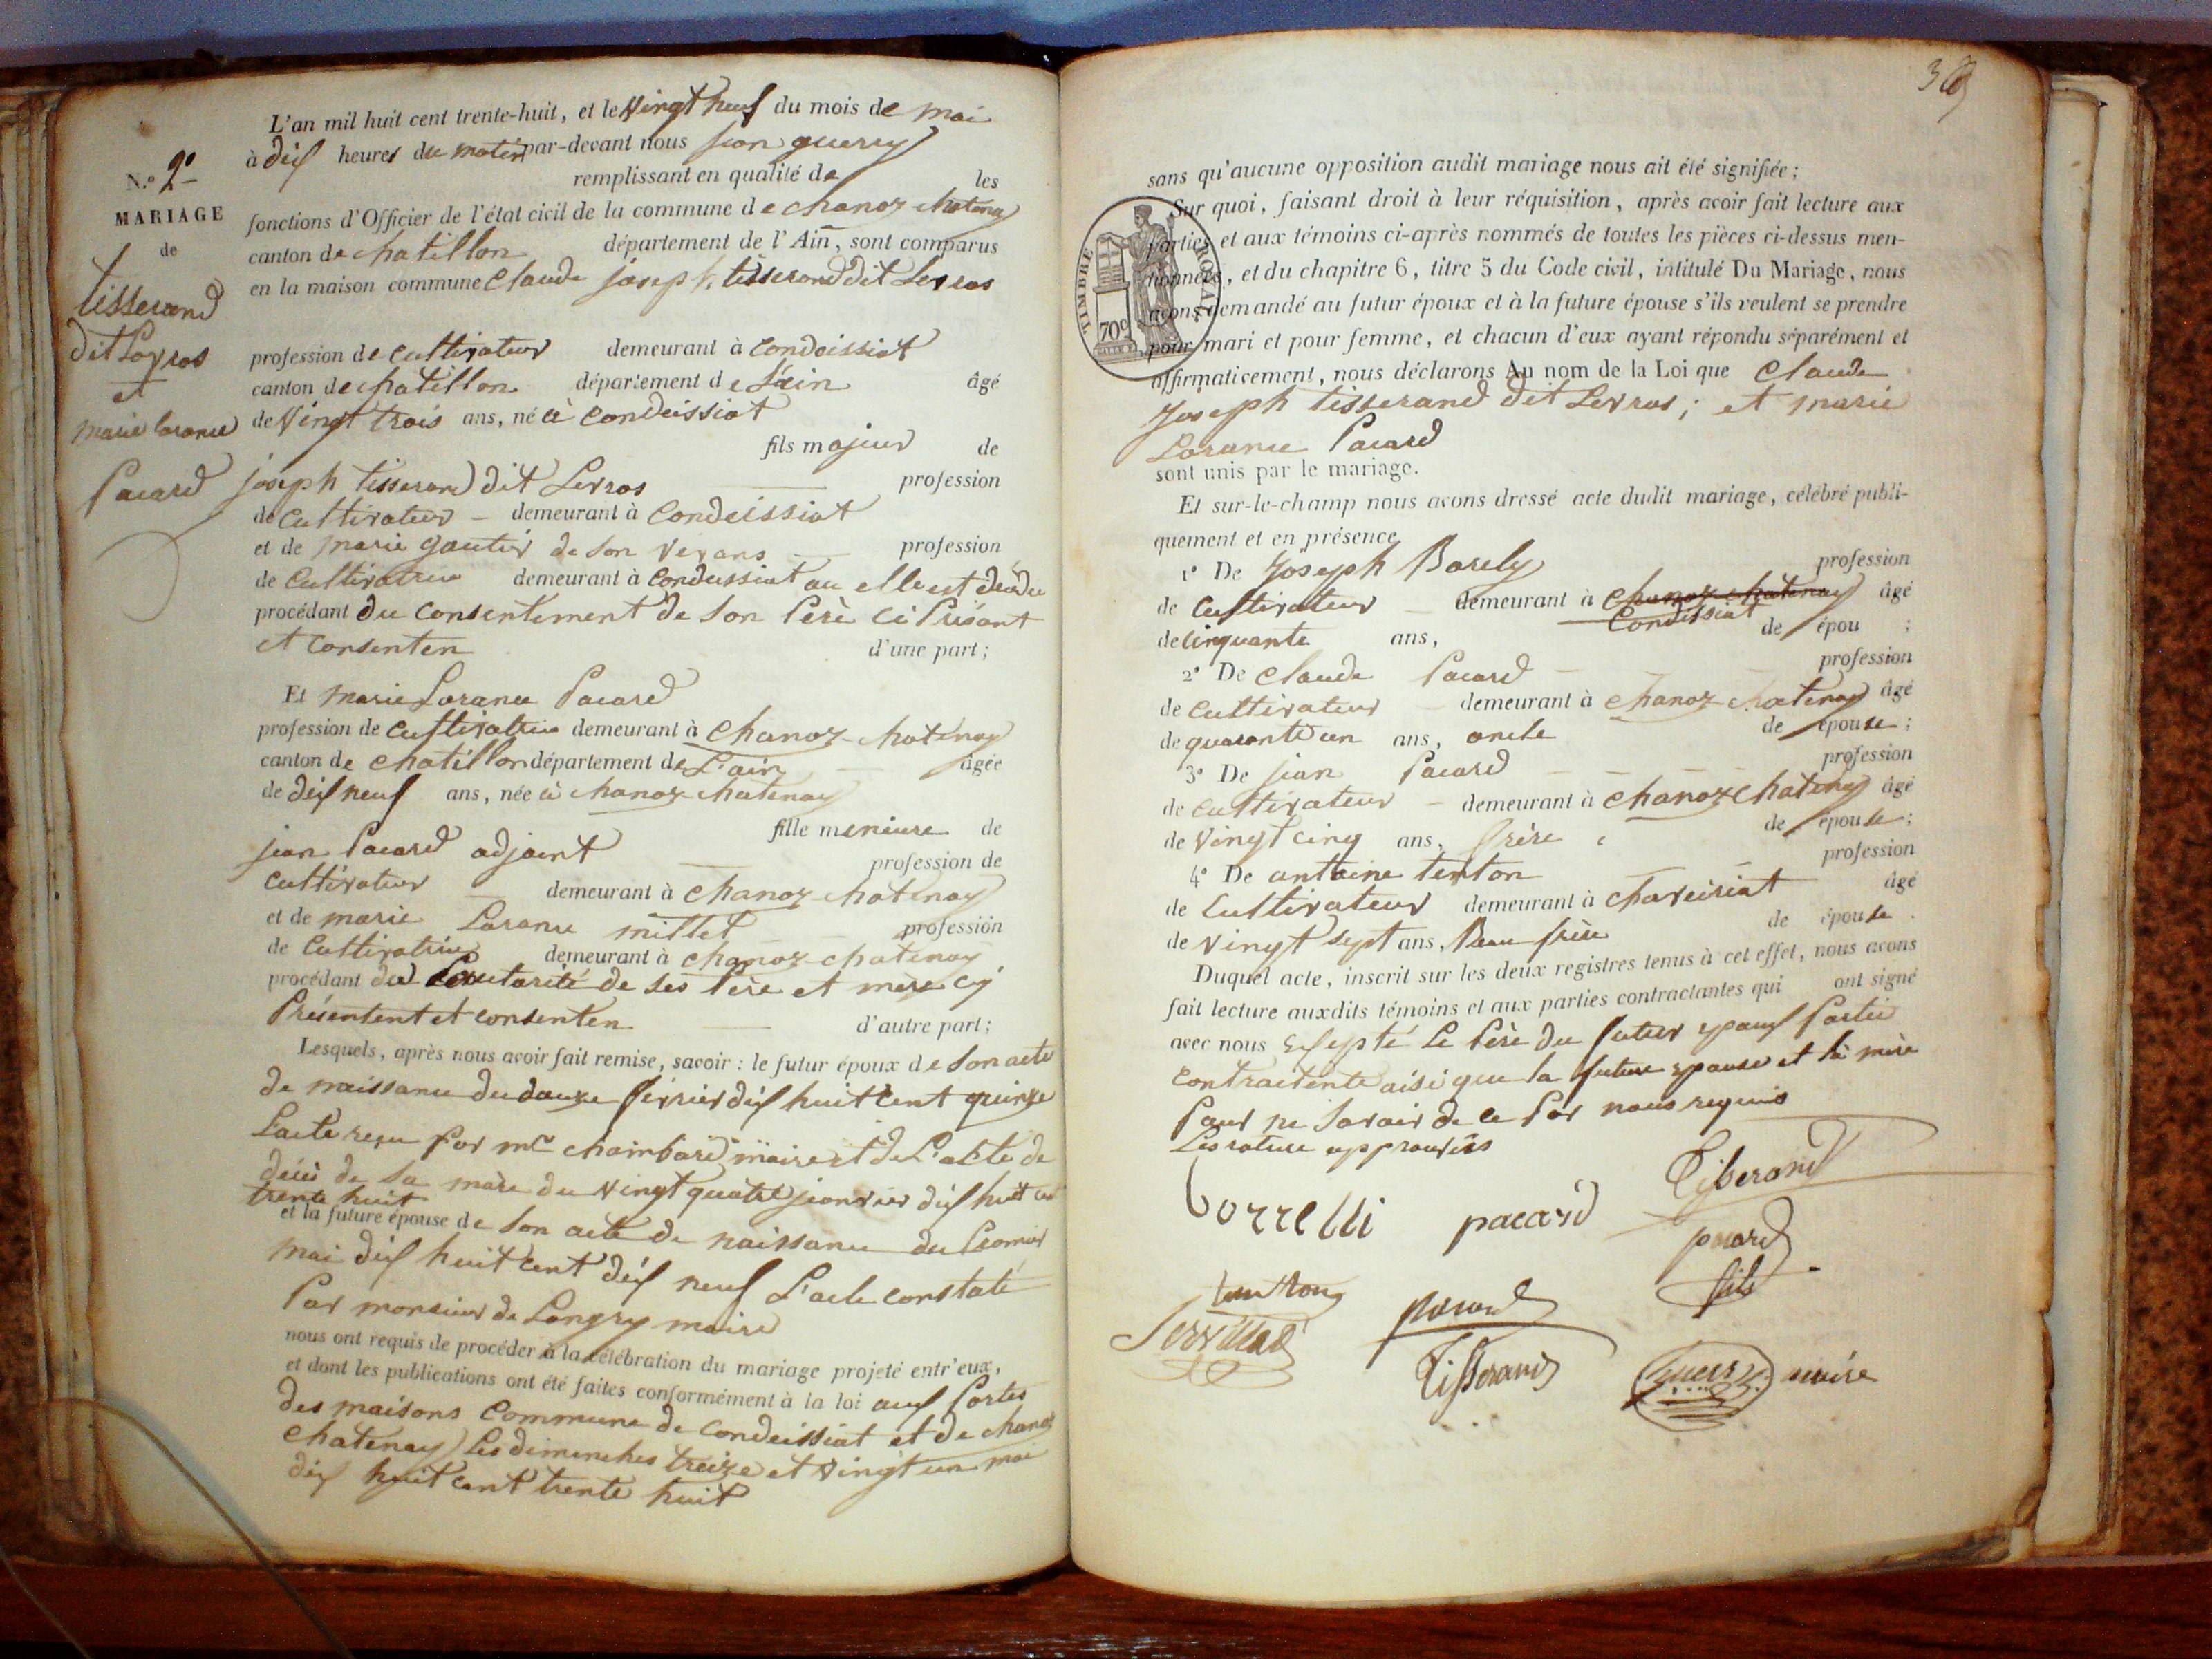 L'an mil huit cent trente-huit, et le Vingt neuf du mois de mai
à dix heures du matin par-devant nous jean guerry
remplissant en qualité de les
N.° 2
MARIAGE
de
tisserand
dit Levros
et
marie lorance
Pacard
fonctions d'Officier de l'état civil de la commune de chanoz chatenay
canton de chatillon département de l'Ain, sont comparus
en la maison commune Claude joseph tisserand dit Levros
profession de cultivateur demeurant à Condeissiat
canton de chatillon département de L'ain âgé
de Vingt trois ans, né à Condeissiat
fils majeur de
joseph tisserand dit Levros profession
de Cultivateur — demeurant à Condeissiat
et de marie gautier de son vivans profession
de Cultivatrice demeurant à Condeissiat ou elle est décédée
procédant du consentement de son Père ci Présant
et consenten d'une part;
Et marie Lorance Pacard
profession de Cultivatrice demeurant à Chanoz-chatenay
canton de chatillon département de L'ain âgée
de dix neuf ans, née à chanoz-chatenay
fille mineure de
jean Pacard adjoint profession de
cultivateur demeurant à Chanoz-chatenay
et de marie Lorance millet profession
de Cultivatrice demeurant à chanoz-chatenay
procédant de L'autorité de ses Père et mère cy
Présentent et consenten d'autre part;
Lesquels, après nous avoir fait remise, savoir : le futur époux de son acte
de naissance du douze février dix huit cent quinze
L'acte reçu Par mr chambard maire et de L'acte de
décès de sa mère du vingt quatre janvier dix huit cent
trente huit
et la future épouse de son acte de naissance du Premier
mai dix huit cent dix neuf L'acte constaté
Par monsieur de Longry maire
nous ont requis de procéder à la célébration du mariage projeté entr'eux,
et dont les publications ont été faites conformément à la loi aux Portes
des maisons Commune de Condeissiat et de chanoz
chatenay Les dimenches treize et vingt un mai
dix huit cent trente huit
sans qu'aucune opposition audit mariage nous ait été signifiée;
Sur quoi, faisant droit à leur réquisition, après avoir fait lecture aux
parties et aux témoins ci-après nommés de toutes les pièces ci-dessus men-
tionnées, et du chapitre 6, titre 5 du Code civil, intitulé Du Mariage, nous
avons demandé au futur époux et à la future épouse s'ils veulent se prendre
pour mari et pour femme, et chacun d'eux ayant répondu séparément et
affirmativement, nous déclarons Au nom de la Loi que Claude
TIMBRE ROYAL
70c
Joseph tisserand dit Levros; et marie
Lorance Pacard
sont unis par le mariage.
Et sur-le-champ nous avons dressé acte dudit mariage, célébré publi-
quement et en présence
1° De Joseph Borely profession
de Cultivateur — demeurant à chanoz-chatenay âgé
Condeissiat
de cinquante ans, de épou ;
2° De Claude Pacard — profession
de Cultivateur — demeurant à chanoz-chatenay âgé
de quarante un ans, oncle de épouse;
3° De jean Pacard profession
de cultivateur — demeurant à chanoz chatenay âgé
de Vingt cinq ans, frère de épouse;
4° De antoine tenton profession
de Cultivateur demeurant à chaveiriat âgé
de vingt sept ans, Beau frère de épouse.
Duquel acte, inscrit sur les deux registres tenus à cet effet, nous avons
fait lecture auxdits témoins et aux parties contractantes qui ont signé
avec nous excepté Le Père du futur epoux Partie
contractente aisi que la future epouse et sa mère
Pour ne savoir de ce Par nous requis
Les rature approuvées
borrelli pacard Tisserand
pacard
fils
tenton pacard
Tisserand guerry maire